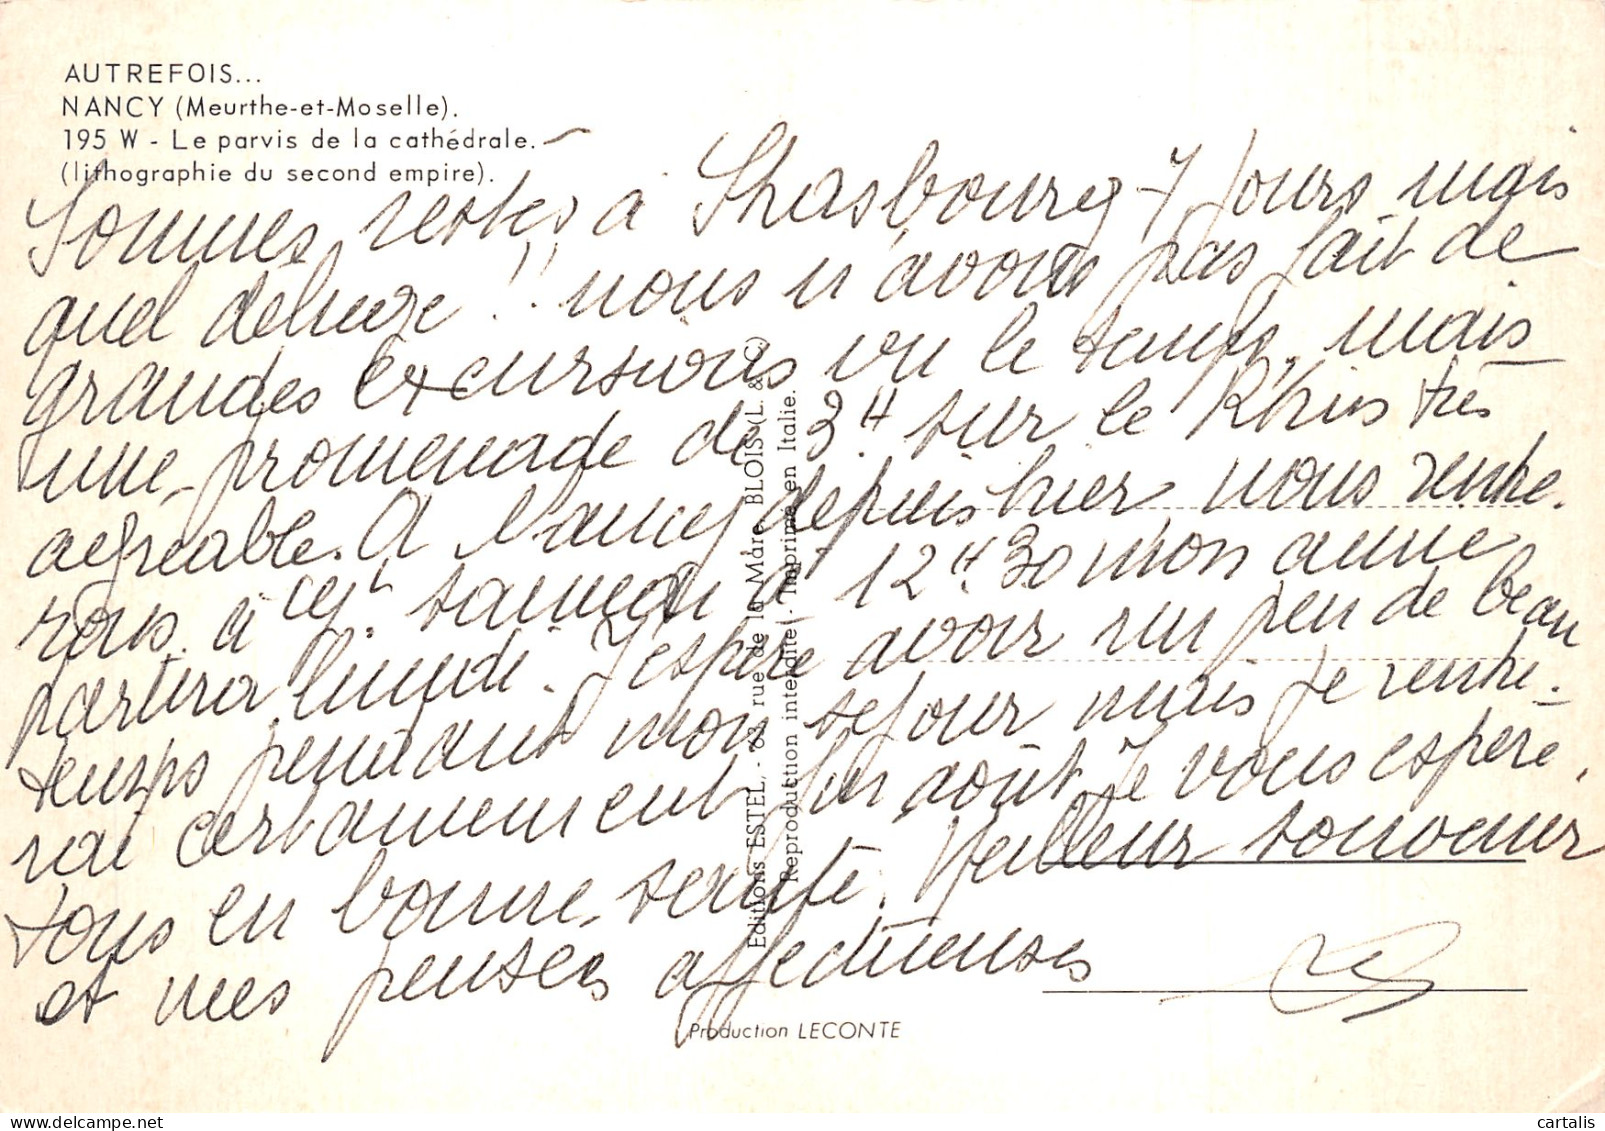 AUTREFOIS...
NANCY (Meurthe-et-Moselle).
195 W - Le parvis de la cathédrale.
(lithographie du second empire).
Sommes restés à Strasbourg 7 jours mais
quel deluge !! nous n'avons pas fait de
grandes excursions vu le temps, mais
une promenade de 3H sur le Rhin très
agréable. A Nancy depuis hier nous rentre.
rons à samedi à 12H30 mon amie
partira lundi. J'espère avoir un peu de beau
temps pendant mon séjour mais je rentre.
rai certainement fin août Je vous espère
tous en bonne santé. Meilleur souvenir
et mes pensées affectueuses
Editions ESTEL, - rue de la Mare BLOIS (L. & C.)
Reproduction interdite - Imprimé en Italie.
Production LECONTE
cartalis